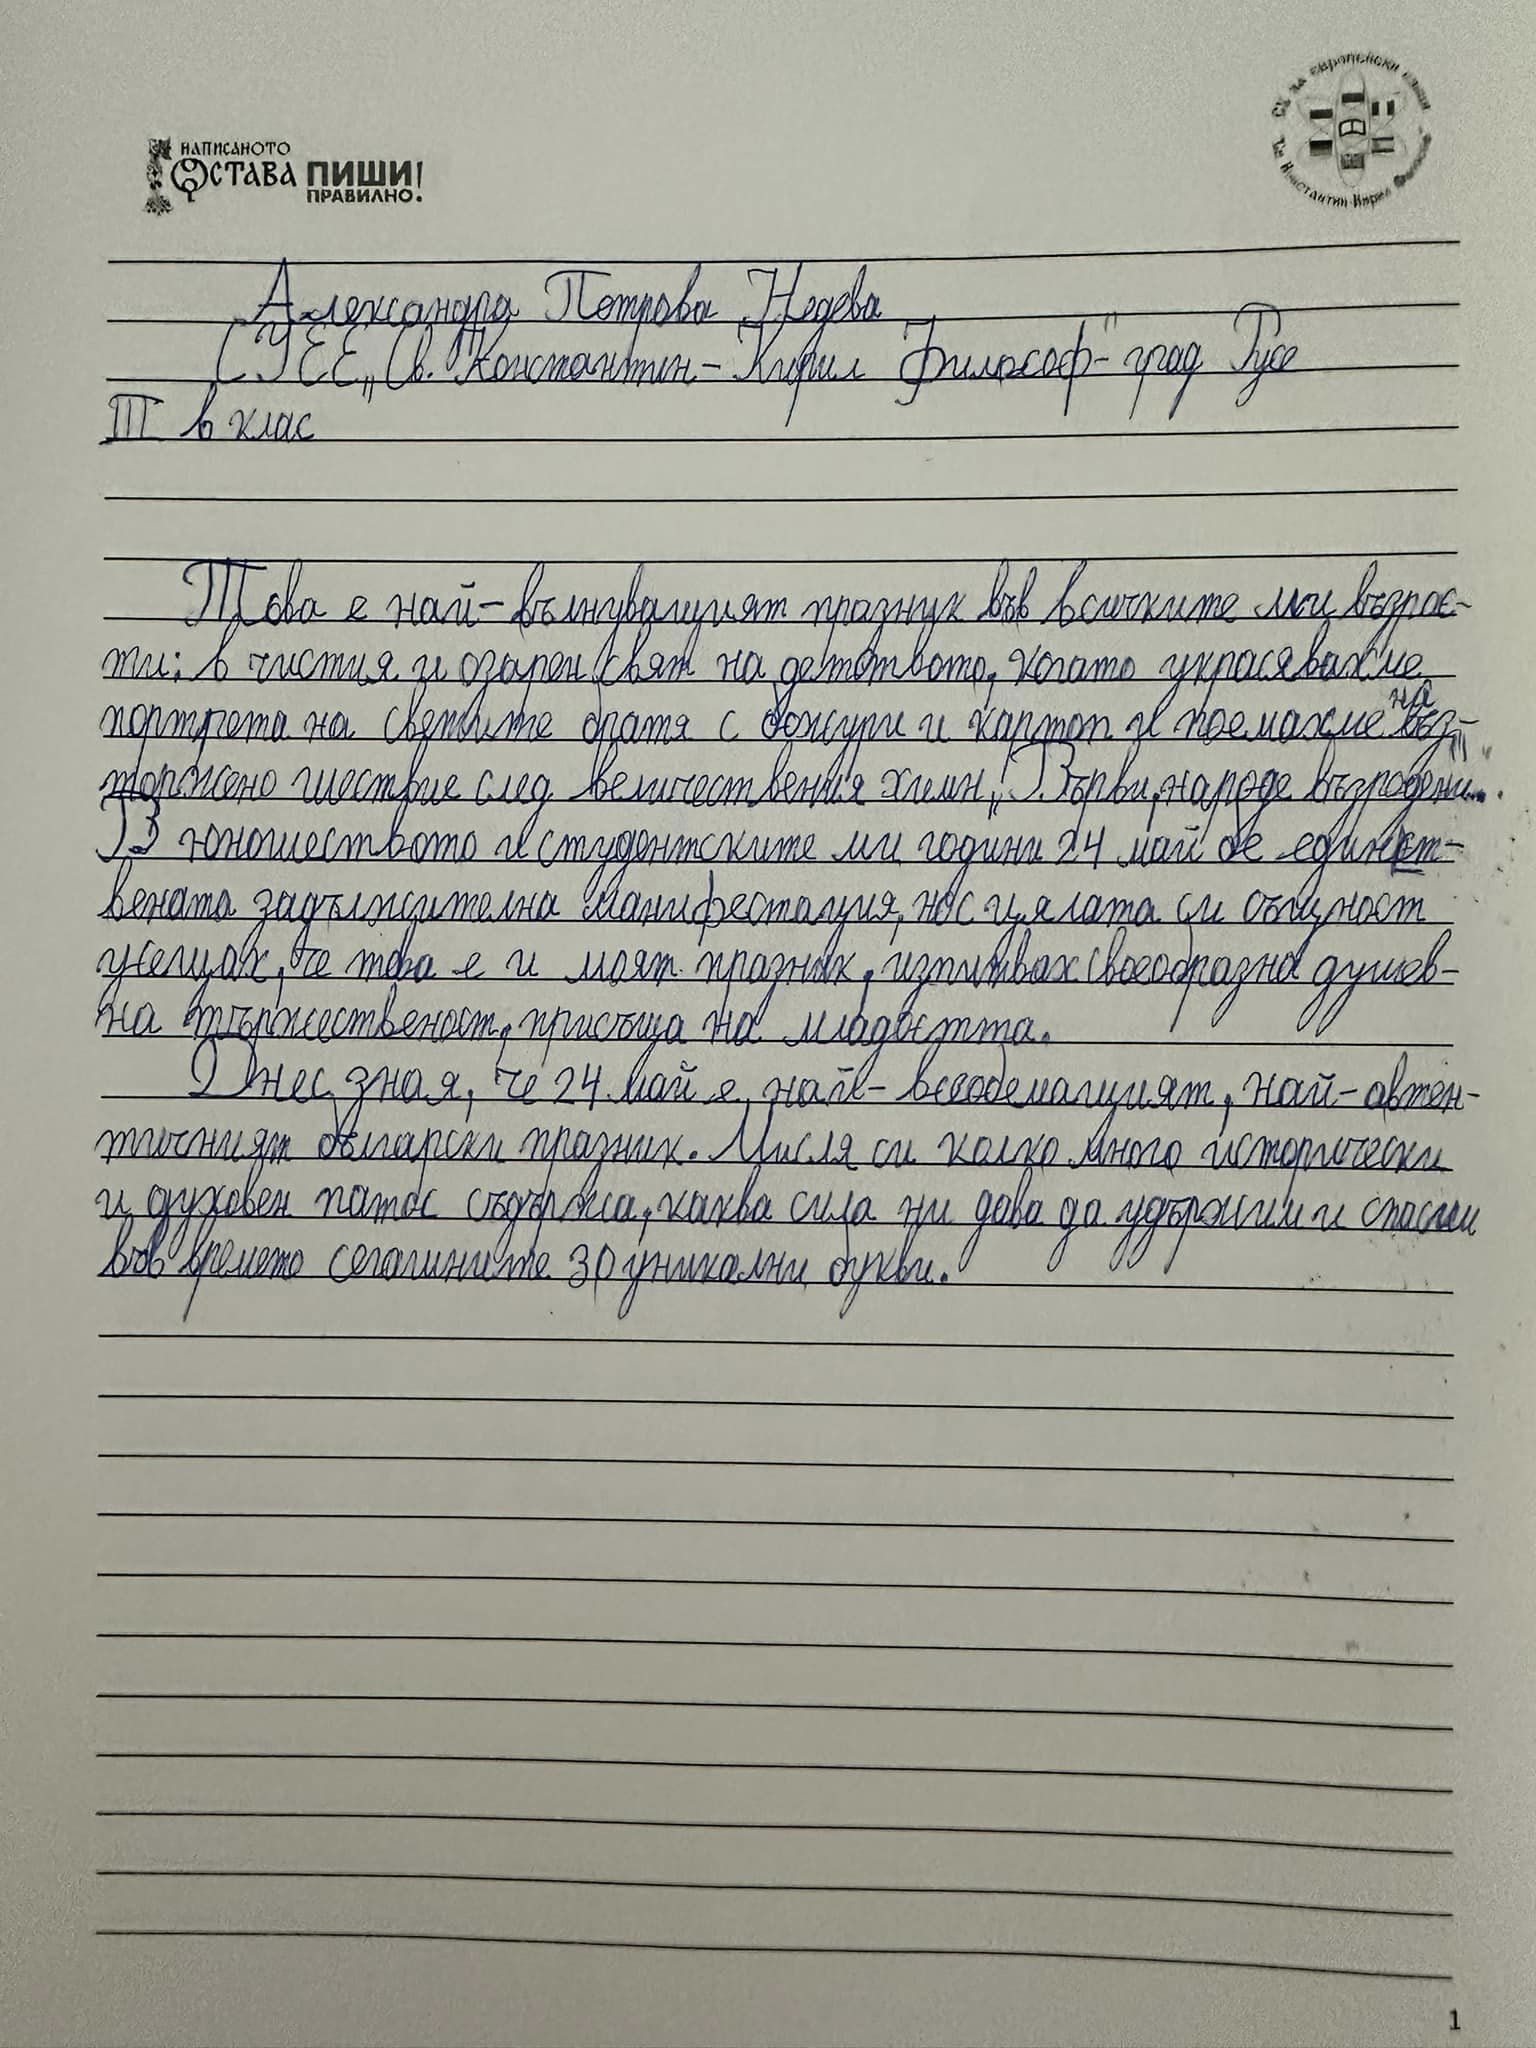 НАПИСАНОТО
ОСТАВА ПИШИ!
ПРАВИЛНО!
СУ за европейски езици
Св. Константин-Кирил Философ
Александра Петрова Недева
СУЕЕ „Св. Константин-Кирил Философ" - град Русе
III в клас
Това е най-вълнуващият празнук във всичките ми възрас-
ти: в чистия и озарен свят на детството, когато украсявахме
портрета на светите братя с божури и картон и поемахме на въз-
торжено шествие след величествения химн „Върви, народе възродени..."
В юношеството и студентските ми години 24 май бе единст-
вената задължителна манифестация, но с цялата си същност
усещах, че това е и моят празник, изпитвах своеобразна душев-
на тържественост, присъща на младостта.
Днес зная, че 24 май е най-всеобемащият, най-автен-
тичният български празник. Мисля си колко много исторически
и духовен патос съдържа, каква сила ни дава да удържим и спасим
във времето сегашните 30 уникални букви.
1